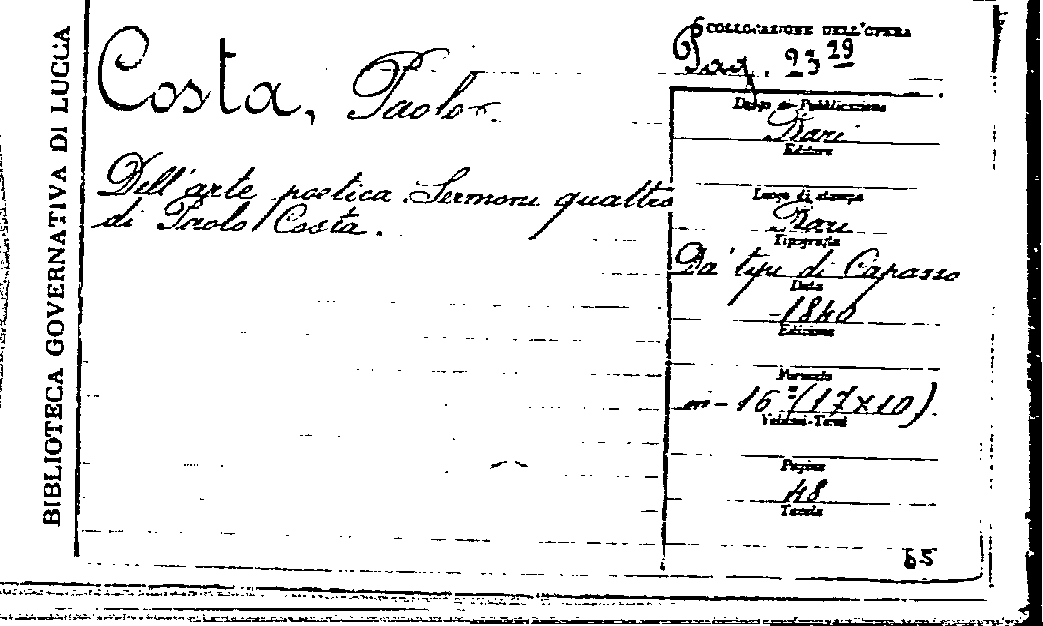 BIBLIOTECA GOVERNATIVA DI LUCCA
Costa, Paolo.
Dell'arte poetica Sermoni quattro
di Paolo Costa.
COLLOCAZIONE DELL'OPERA
Pag. 23 29
Luogo di Pubblicazione
Bari
Editore
Luogo di stampa
Bari
Tipografia
Da' tipi di Capasso
Data
1840
Edizione
Formato
in-16° (17x10).
Volumi-Tomi
Pagine
48
Tavole
65